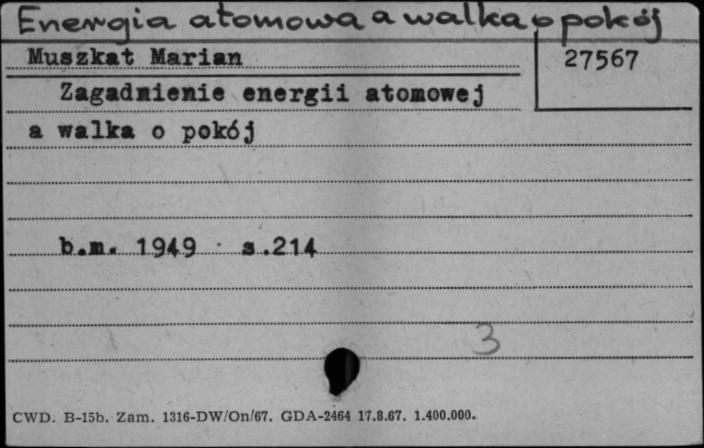 Energia atomowa a walka o pokój
Muszkat Marian
27567
Zagadnienie energii atomowej
a walka o pokój
b.m. 1949 s.214
3
CWD. B-15b. Zam. 1316-DW/On/67. GDA-2464 17.8.67. 1.400.000.